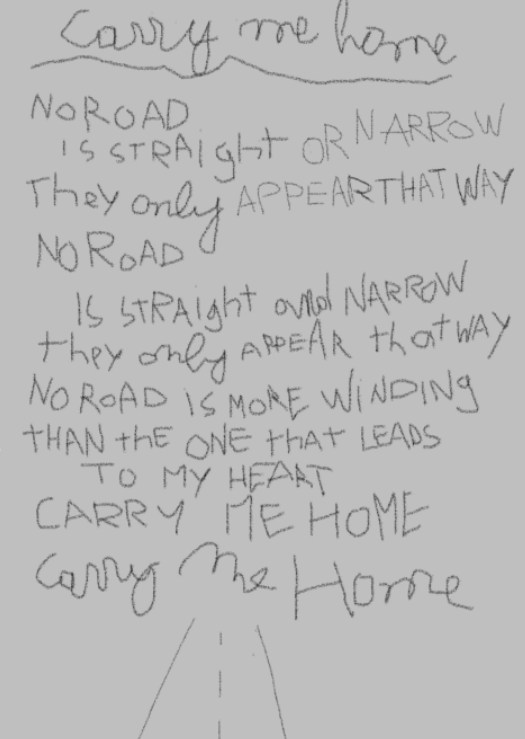 Carry me home
NO ROAD
IS STRAIght OR NARROW
They only APPEAR THAT WAY
NO ROAD
IS STRAIght and NARROW
they only APPEAR that WAY
NO ROAD IS MORE WINDING
THAN thE ONE that LEADS
TO MY HEART
CARRY ME HOME
Carry Me Home